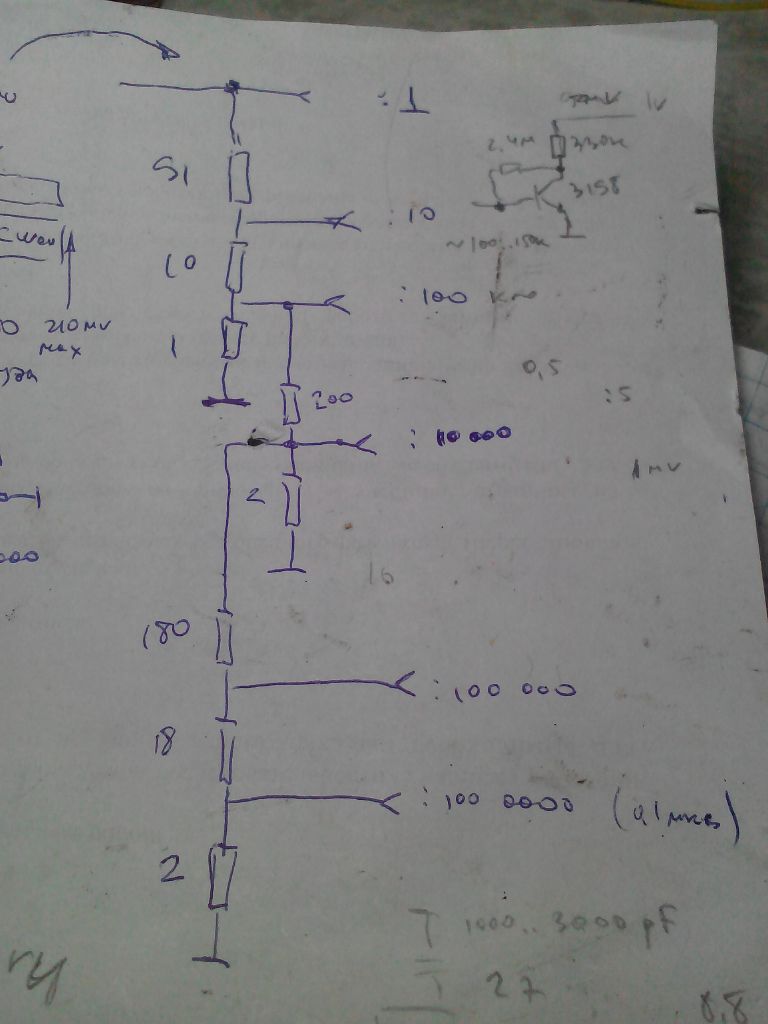 : 1
1V
2,4M
330K
3158
51
: 10
~100..150K
10
: 100
210 mV
max
1
200
0,5
: 5
: 10 000
1 mV
2
16
180
: 100 000
18
: 100 0000 (0,1 мкв)
2
1000..3000 pF
27
8,8